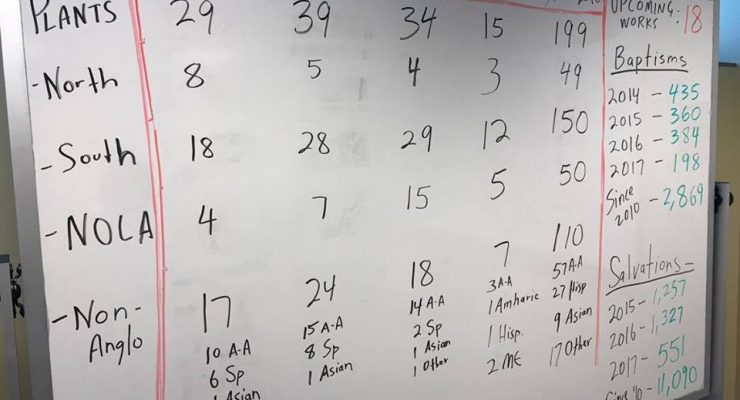 PLANTS 29 39 34 15 199
-North 8 5 4 3 49
-South 18 28 29 12 150
-NOLA 4 7 15 5 50
-Non-Anglo 17 24 18 7 110
10 A-A 15 A-A 14 A-A 3 A-A 57 AA
6 Sp 8 Sp 2 Sp 1 Amharic 27 Hisp
1 Asian 1 Asian 1 Asian 1 Hisp. 9 Asian
1 Other 2 ME 17 Other
UPCOMING WORKS: 18
Baptisms
2014 - 435
2015 - 360
2016 - 384
2017 - 198
Since 2010 - 2,869
Salvations -
2015 - 1,257
2016 - 1,327
2017 - 551
Since '10 - 11,090